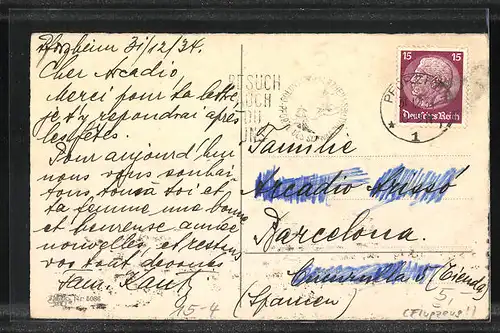 Pforzheim 31/12/34.
Cher Arcadio,
Merci pour ta lettre,
je t'y repondrai après
les fêtes.
Pour aujourd'hui
nous vous souhai-
tons tous à toi et
ta femme une bonne
et heureuse année
nouvelle et restons
vos tout devoués
Fam. Kautz
Nr 5086
15-4
BESUCH
AUCH
DU
15 15
Deutsches Reich
PFORZHEIM
* 1
Familie
Arcadio
Barcelona.
5 (Tienda)
(Spanien)
5,
(Flugzeug!)